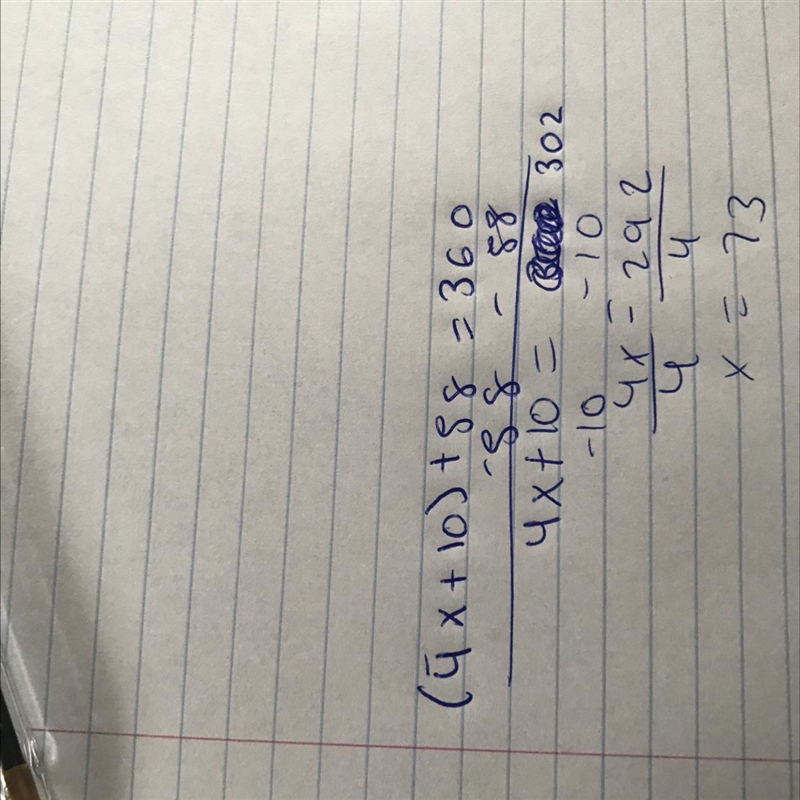 (4x+10)+58 = 360
-58 - 58
4x+10 = 302
-10 -10
4x = 292
4 4
x = 73